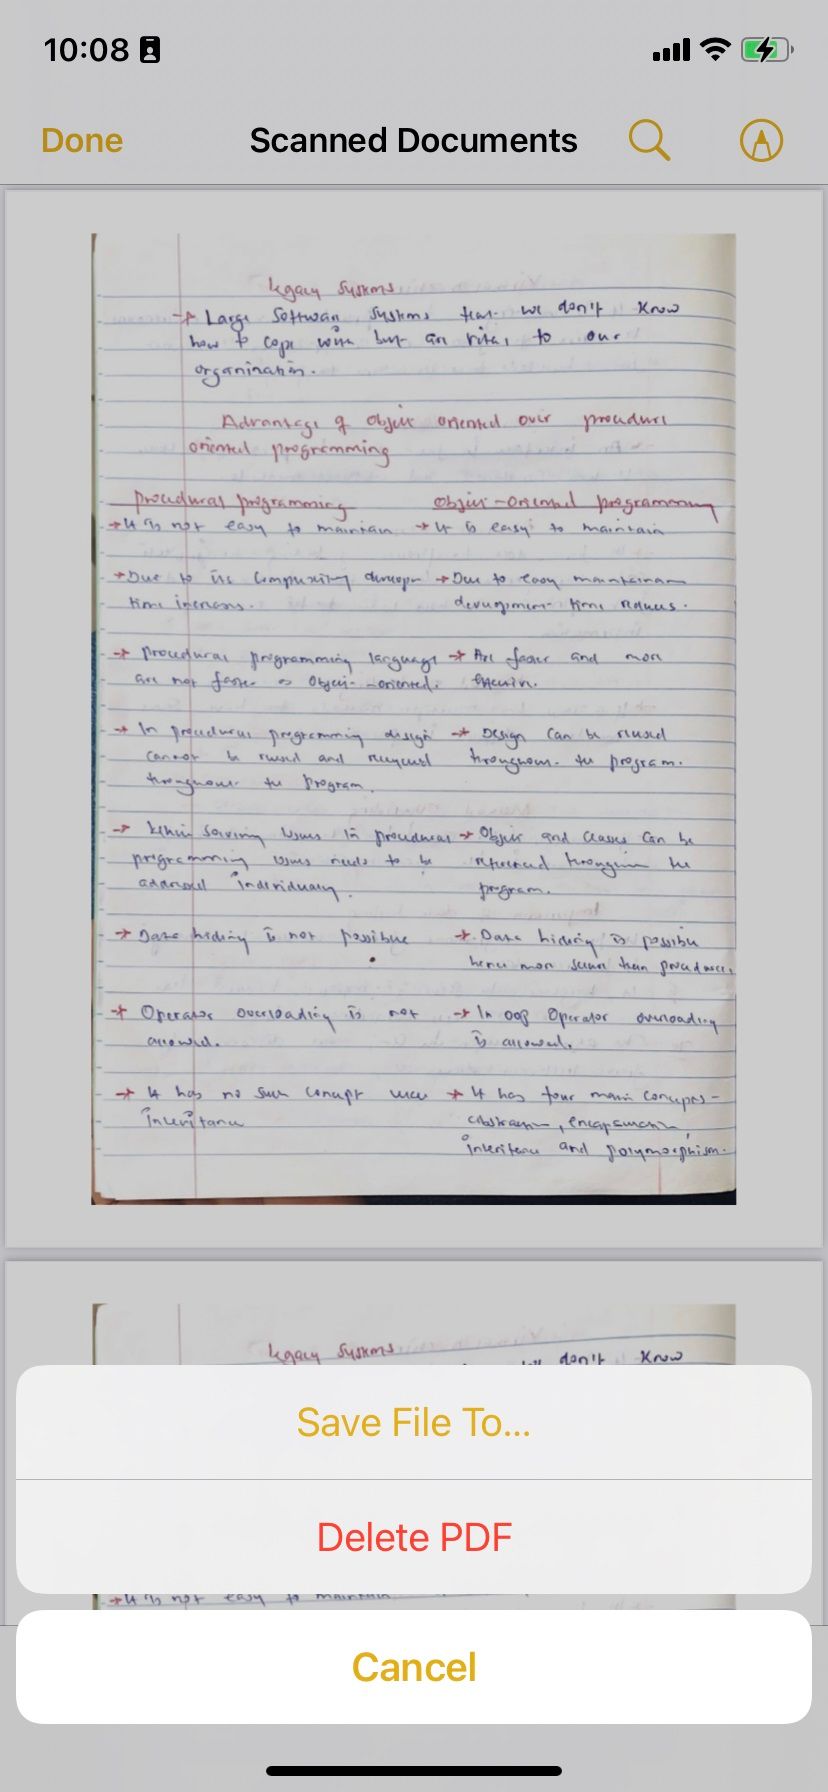 10:08
Done
Scanned Documents
Legacy Systems
→ Large Software Systems that we don't know
how to cope with but are vital to our
organization.
Advantage of Object oriented over procedure
oriented programming
procedural programming
Object-Oriented programming
→ It is not easy to maintain
→ It is easy to maintain
→ Due to its complexity develop
time increases.
→ Due to easy maintenance
development time reduces.
→ procedural programming language
are not faster as Object-oriented.
→ Are faster and more
efficient.
→ In procedural programming design
cannot be reused and recycled
throughout the program.
→ Design can be reused
throughout the program.
→ When solving issues in procedural
programming issues needs to be
addressed individually.
→ Object and classes can be
referenced throughout the
program.
→ Data hiding is not possible
→ Data hiding is possible
hence more secure than procedural.
→ Operator overloading is not
allowed.
→ In oop Operator overloading
is allowed.
→ It has no such concept like
inheritance
→ It has four main concepts-
abstraction, encapsulation,
inheritance and polymorphism.
Legacy Systems
don't know
Save File To...
Delete PDF
→ It is not easy to maintain
Cancel